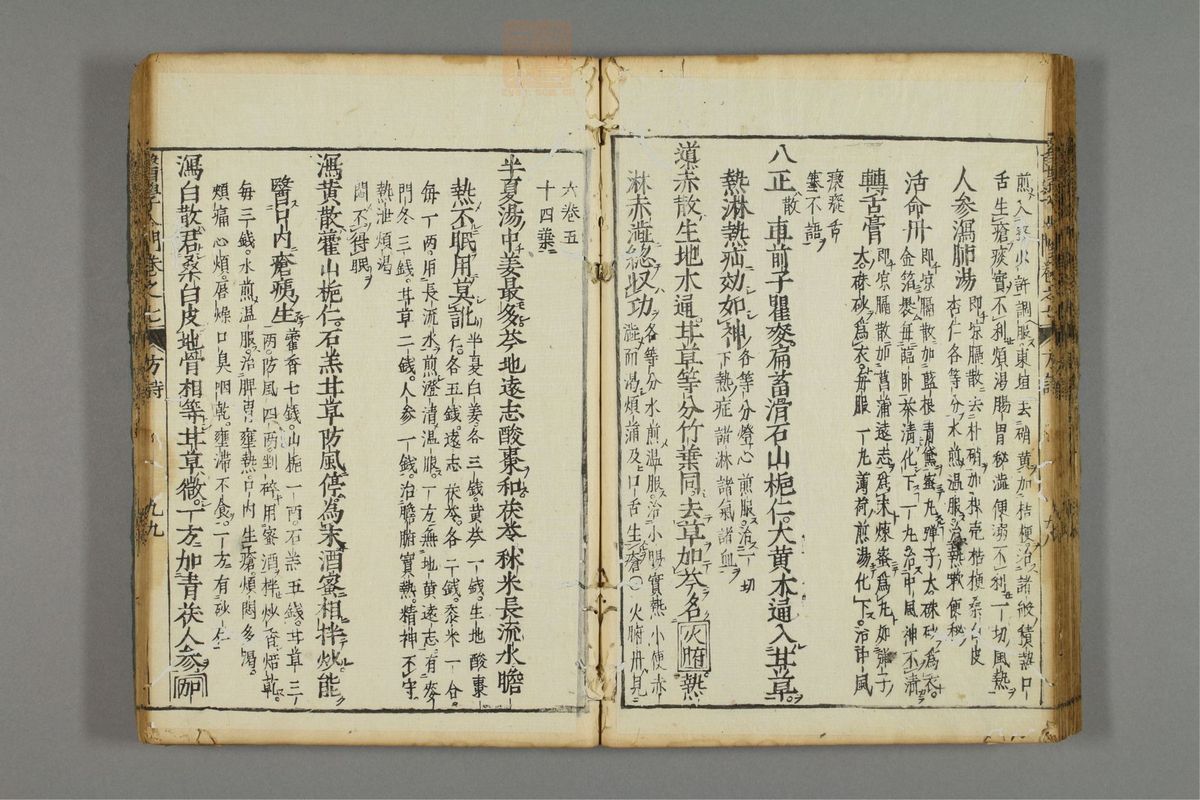 煎入蜜少許調服東垣去硝黄加桔梗治諸般積熱口
舌生瘡痰實不利煩渇腸胃秘澁便溺不利一切風熱
人參瀉肺湯 即凉膈散去朴硝加枳壳桔梗桑白皮
杏仁各等分水煎温服治熱嗽便秘
活命丹 即凉膈散加藍根青黛蜜丸弾子大硃砂爲衣
金箔裹毎臨卧茶清化下一丸治中風神不清
轉舌膏 即凉膈散加菖蒲遠志爲末煉蜜爲丸如弾子
大硃砂爲衣毎服一丸薄荷煎湯化下治中風
瘈瘲舌
塞不語
八正散車前子瞿麥扁畜滑石山梔仁大黄木通入甘草
熱淋熱病効如神 各等分燈心煎服治一切
下熱症諸淋諸氣諸血
導赤散生地木通甘草等分竹葉同去草加芩名火腑熱
淋赤澁總収功 各等分水煎温服治小腸實熱小便赤
澁而渇煩滿及口舌生瘡〇火腑丹見
六巻五
十四葉
半夏湯中姜最多芩地遠志酸棗和茯苓秫米長流水膽
熱不眠用莫訛 半夏白姜各三錢黄芩一錢生地酸棗
仁各五錢遠志茯苓各二錢黍米一合
毎一兩用長流水煎澄清温服一方無地黄遠志有麥
門冬三錢甘草二錢人參一錢治膽腑實熱精神不守
熱泄煩渇
悶不得眠
瀉黄散藿山梔仁石羔甘草防風停為末酒蜜相拌炒能
醫口内瘡病生 藿香七錢山梔一兩石羔五錢甘草三
兩防風四兩剉碎用蜜酒拌炒香焙乾
毎三錢水煎温服治脾胃壅熱口内生瘡煩悶多渇
頰痛心煩唇燥口臭咽乾壅滞不食一方有砂仁
瀉白散君桑白皮地骨相等甘草微一方加青茯人參
醫學入門巻之七 方詩 九九